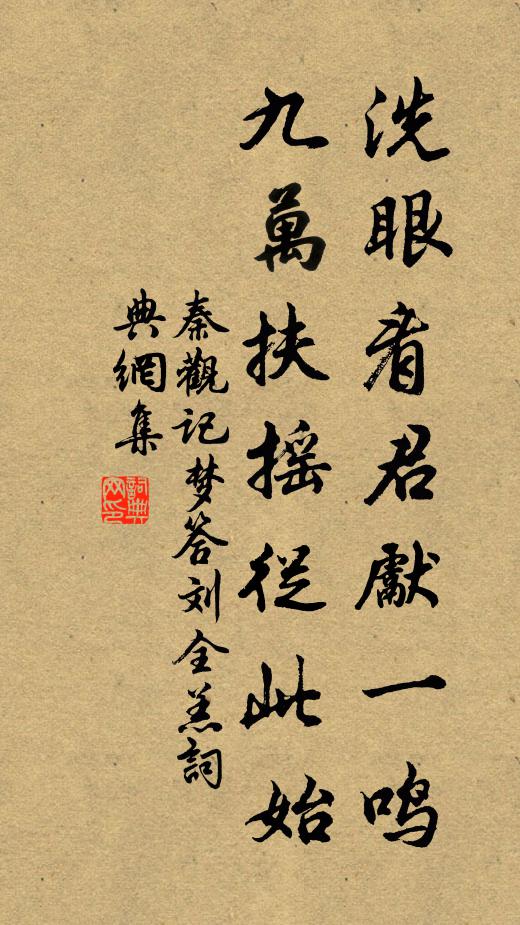 洗眼看君獻一鸣
九萬扶摇從此始
秦觀记梦答刘全美詞
典網集
詞典
网印